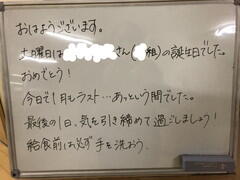 おはようございます。
土曜日は さん( 組)の誕生日でした。
おめでとう！
今日で1月もラスト…あっという間でした。
最後の1日、気を引き締めて過ごしましょう！
給食前は必ず手を洗おう。